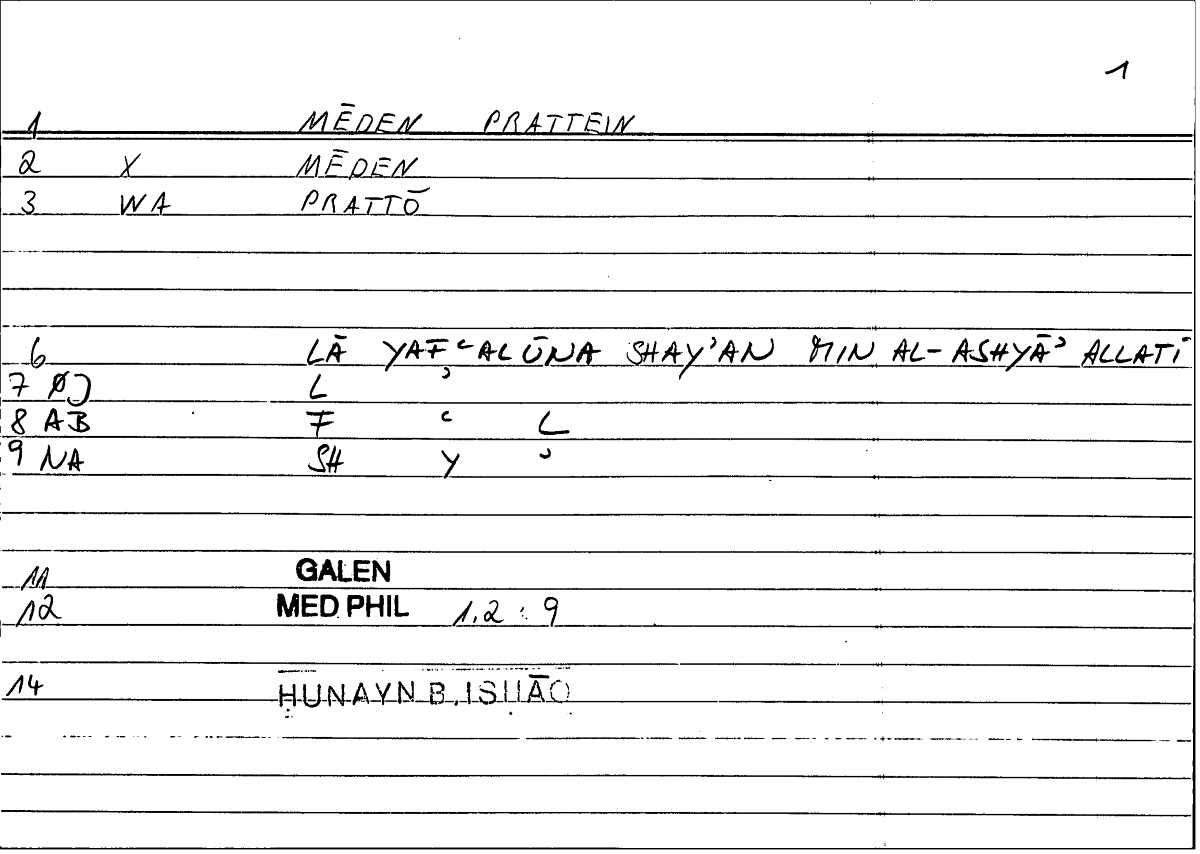 1
1 MĒDEN PRATTEIN
2 X MĒDEN
3 WA PRATTŌ
6 LĀ YAFʿALŪNA SHAYʾAN MIN AL-ASHYĀʾ ALLATĪ
7 ØJ L ʾ
8 AB F ʿ L
9 NA SH Y ʾ
11 GALEN
12 MED PHIL 1.2 : 9
14 ḤUNAYN B. ISḤĀQ